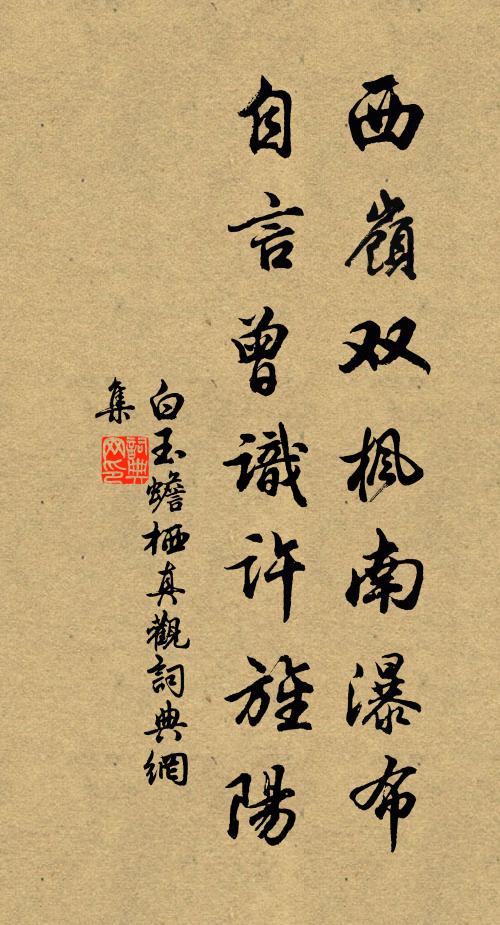 西嶺双楓南瀑布
自言曾識許旌陽
白玉蟾栖真觀詞典網
集
詞典
网印